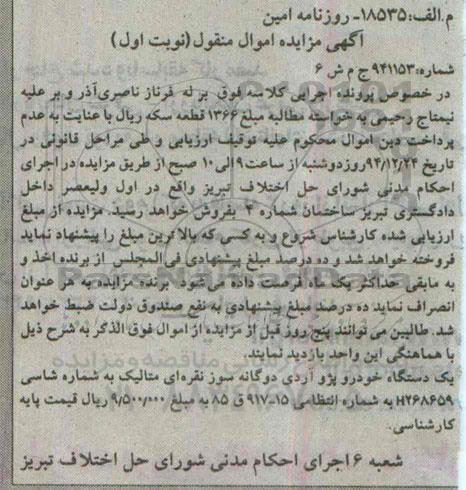 م.الف:۱۸۵۳۵- روزنامه امین
آگهی مزایده اموال منقول(نوبت اول)
شماره:۹۴۱۱۵۳ج م ش ۶
در خصوص پرونده اجرایی کلاسه فوق بر له فرناز ناصری آذر و بر علیه
نیمتاج رحیمی به خواسته مطالبه مبلغ ۱۳۶۶ قطعه سکه ریال با عنایت به عدم
پرداخت دین اموال محکوم علیه توقیف ارزیابی و طی مراحل قانونی در
تاریخ ۹۴/۱۲/۲۴روزدوشنبه از ساعت۹الی۱۰ صبح از طریق مزایده در اجرای
احکام مدنی شورای حل اختلاف تبریز واقع در اول ولیعصر داخل
دادگستری تبریز ساختمان شماره ۴ بفروش خواهد رسید. مزایده از مبلغ
ارزیابی شده کارشناس شروع و به کسی که بالا ترین مبلغ را پیشنهاد نماید
فروخته خواهد شد و ده درصد مبلغ پیشنهادی فی المجلس از برنده اخذ و
به مابقی حداکثر یک ماه فرصت داده می شود. برنده مزایده به هر عنوان
انصراف نماید ده درصد مبلغ پیشنهادی به نفع صندوق دولت ضبط خواهد
شد. طالبین می توانند پنج روز قبل از مزایده از اموال فوق الذکر به شرح ذیل
با هماهنگی این واحد بازدید نمایند.
یک دستگاه خودرو پژو آردی دوگانه سوز نقره‌ای متالیک به شماره شاسی
H۲۶۸۶۵۹ به شماره انتظامی ۱۵-۹۱۷ ق ۸۵ به مبلغ ۹/۵۰۰/۰۰۰ ریال قیمت پایه
کارشناسی.
شعبه ۶ اجرای احکام مدنی شورای حل اختلاف تبریز